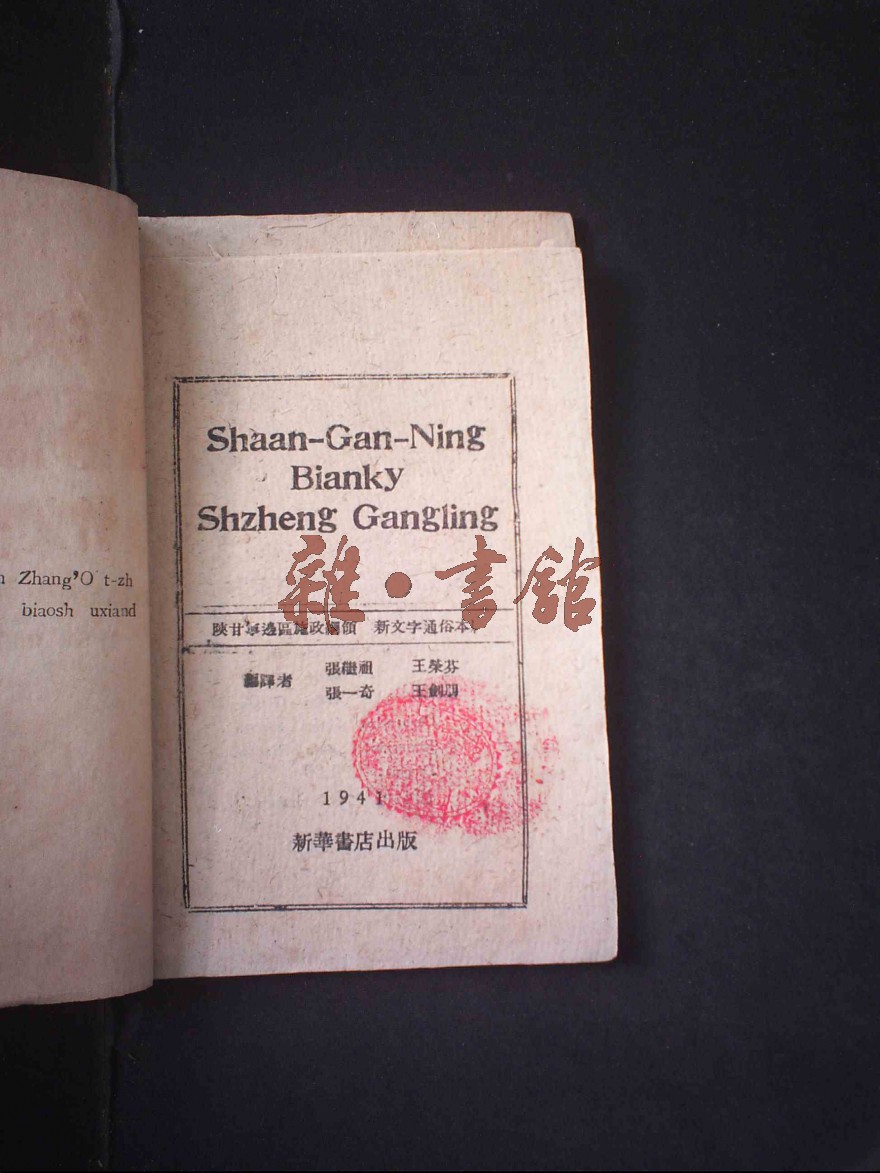 Zhang'O t-zh
biaosh uxiand
Shaan-Gan-Ning
Bianky
Shzheng Gangling
雜·書館
陝甘寧邊區施政綱領 新文字通俗本
張繼祖 王榮芬
譯者
張一奇 王劍
1941
新華書店出版